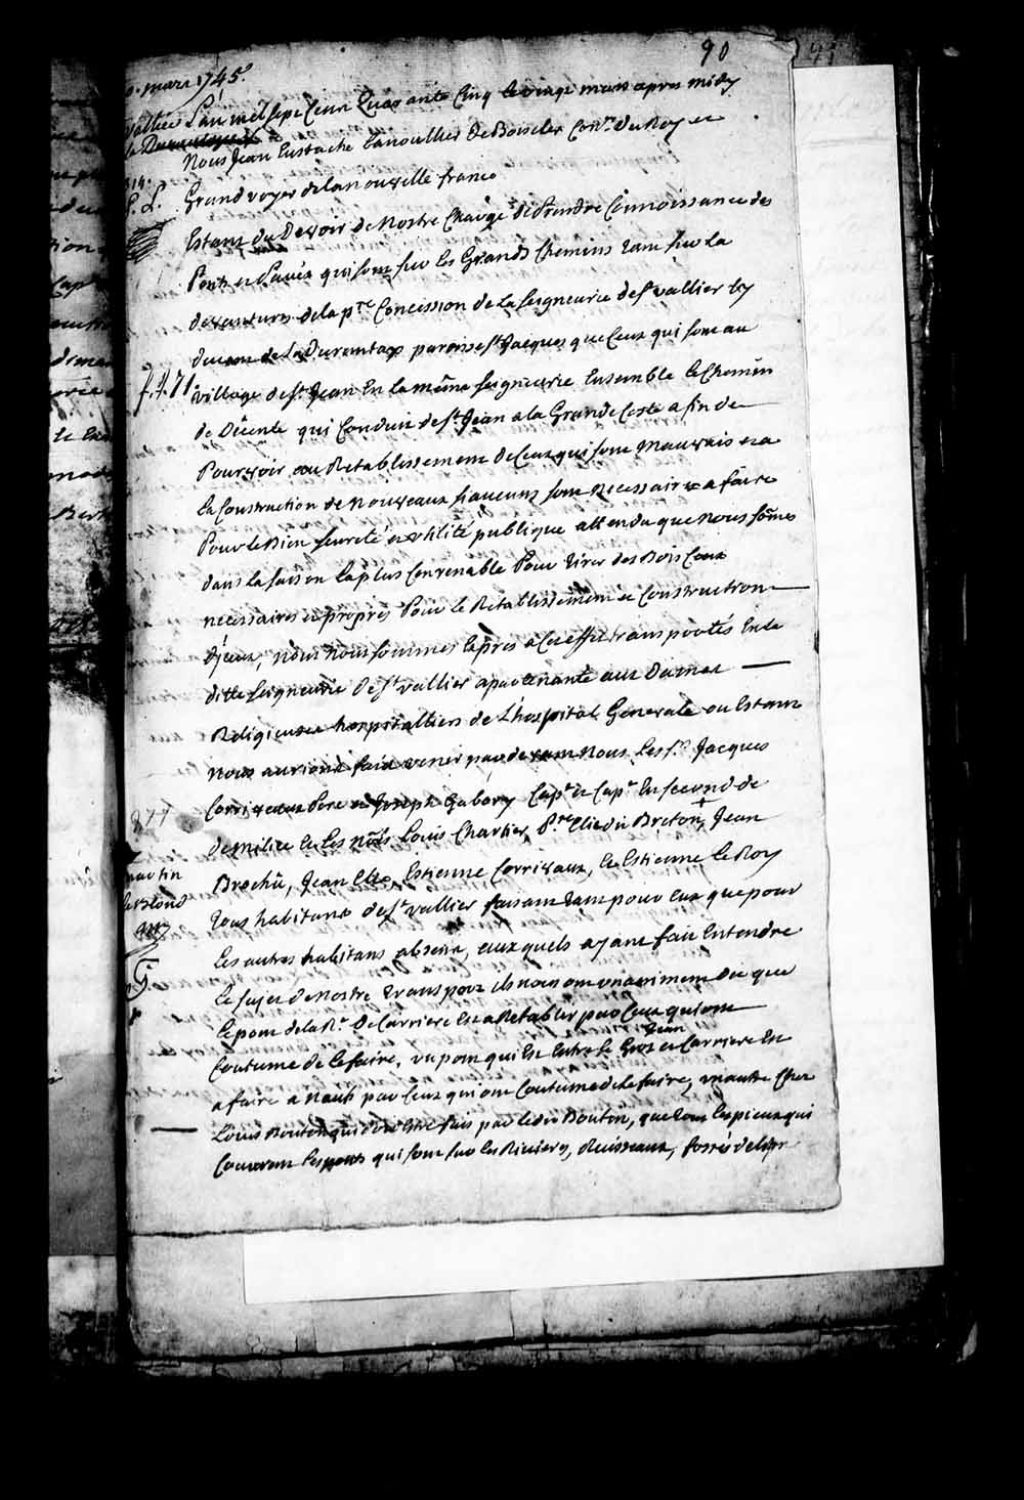 90
mars 1745.
L'an mil sept Cent Quarante Cinq le vingt mars apres midy
Nous Jean Eustache Lanoullier De Boisclerc Con.er Du Roy et
Grand voyer de la nouvelle france
Estant du Devoir de Nostre Charge De Prendre Connoissance des
Ponts et qui sont sur les Grands Chemins tant sur La
devanture de la p.re Concession de La seigneurie de S.t vallier
La Durantaye paroisse S.t Jacques que Ceux qui sont au
f. 4. 71
village de S.t Jean En la même seigneurie Ensemble le Chemin
de Décente qui Conduit de S.t Jean a la Grande Coste afin de
Pourvoir au Retablissement de Ceux qui sont Mauvais et a
la Construction de Nouveaux si aucuns sont Necessaires a faire
Pour le Bien seureté et utilité publique attendu que Nous sômes
dans la saison la plus Convenable Pour tirer des Bois
necessaires et propres Pour le Retablissement et Construction
d'jceux, Nous Nous sommes Expres a Cet effet transportés En la
ditte seigneurie De S.t vallier apartenante aux Dames
Religieuses hospitallieres de L'hospital Generale ou Estant
Nous aurions faid venir par devant Nous les S.rs Jacques
Corriveaux Pere et Joseph Gabory Cap.e et Cap.e En second de
de milice et les nôes Louis Chartier, P.re Elie dit Breton, Jean
Brochû, Jean Elie, Estienne Corrivaux, et Estienne Le Roy
martin
tous habitans de S.t vallier faisant tant pour Eux que pour
les autres habitans absent, auxquels ayant fait Entendre
le sujet de Nostre transport ils nous ont unanimement Dit que
le pont de la R.e De Carriere Est a Retablir par Ceux qui ont
Coutume de le faire, un pont qui Est Entre le Gros Jean et Carriere Est
a faire a Neuf par Ceux qui ont Coutume de le faire, un autre Chez
Louis Bouton qui doit Estre fait par le dit Bouton, que tous les pieux qui
Couvrent les ponts qui sont sur les Rivieres, Ruisseaux, fossés de